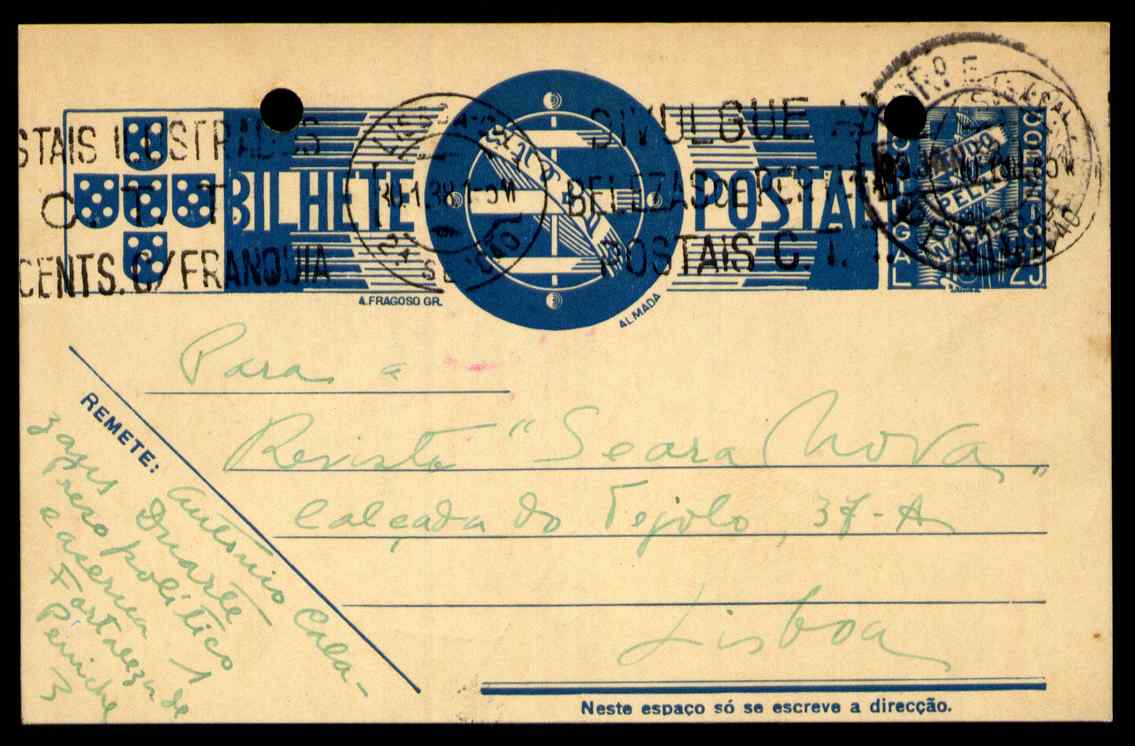 STAIS ILUSTRADOS
C. T. T.
CENTS. C/ FRANQUIA
BILHETE
30-1.38.1-5M
DIVULGUE AS
BELEZAS DE
POSTAL
POSTAIS C. T. T.
TUDO
PELA
25
A. FRAGOSO GR.
ALMADA
Para a
Revista "Seara Nova"
Calçada do Tejolo, 37-A
Lisboa
REMETE:
António Cala-
zazes Duarte
preso político
caserna 1
Fortaleza de
Peniche
3
Neste espaço só se escreve a direcção.